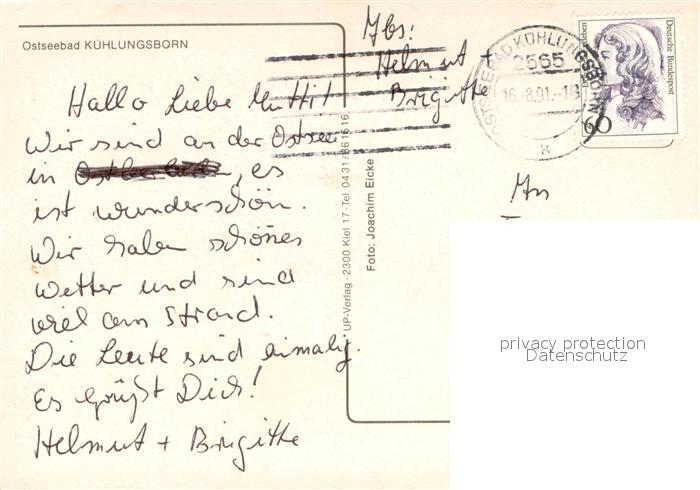 Ostseebad KÜHLUNGSBORN
Hallo Liebe Mutti!
Wir sind an der Ostsee
in , es
ist wunderschön.
Wir haben schönes
Wetter und sind
viel am Strand.
Die Leute sind einmalig.
Es grüßt Dich!
Helmut + Brigitte
Abs:
Helmut +
Brigitte
OSTSEEBAD KÜHLUNGSBORN
2565
16.-8.91.-18
K
Deutsche Bundespost
60
UP-Verlag · 2300 Kiel 17 · Tel. 04 31/36 16 16
Foto: Joachim Eicke
An
privacy protection
Datenschutz